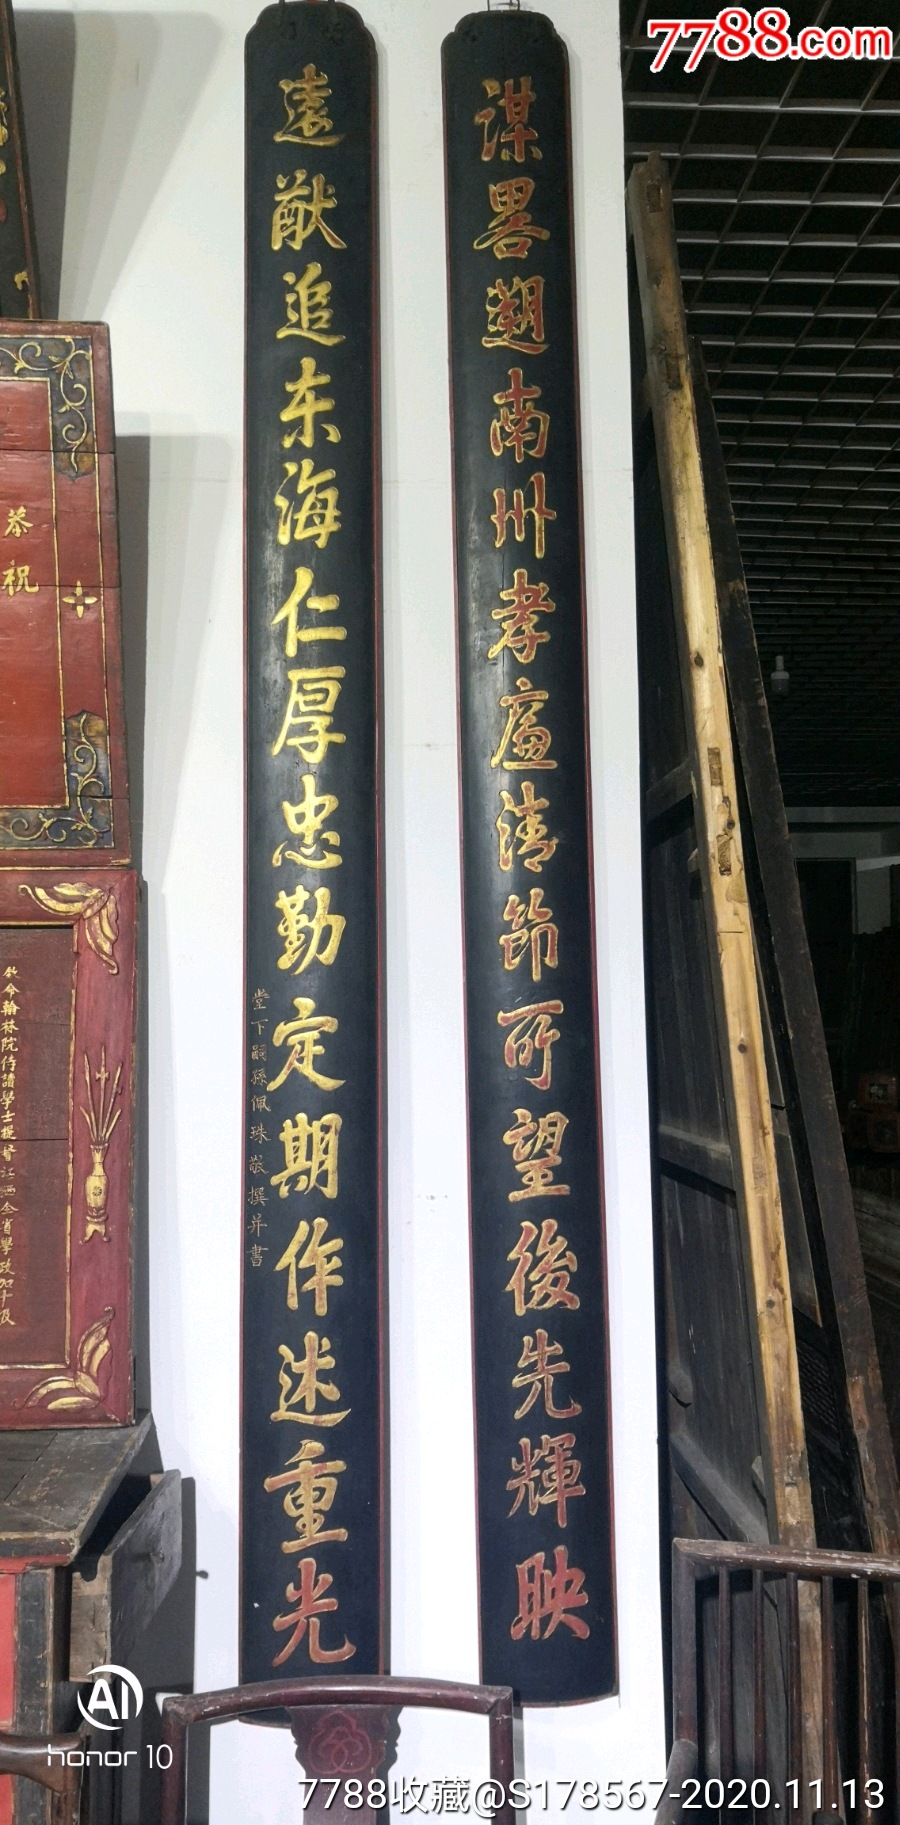 7788.com
谋畧遡南州孝廉清節所望後先輝映
遠猷追东海仁厚忠勤定期作述重光
堂下嗣孫佩珠敬撰并書
恭祝
欽命翰林院侍讀學士提督江西全省學政加十級
AI
honor 10
7788收藏@S178567-2020.11.13